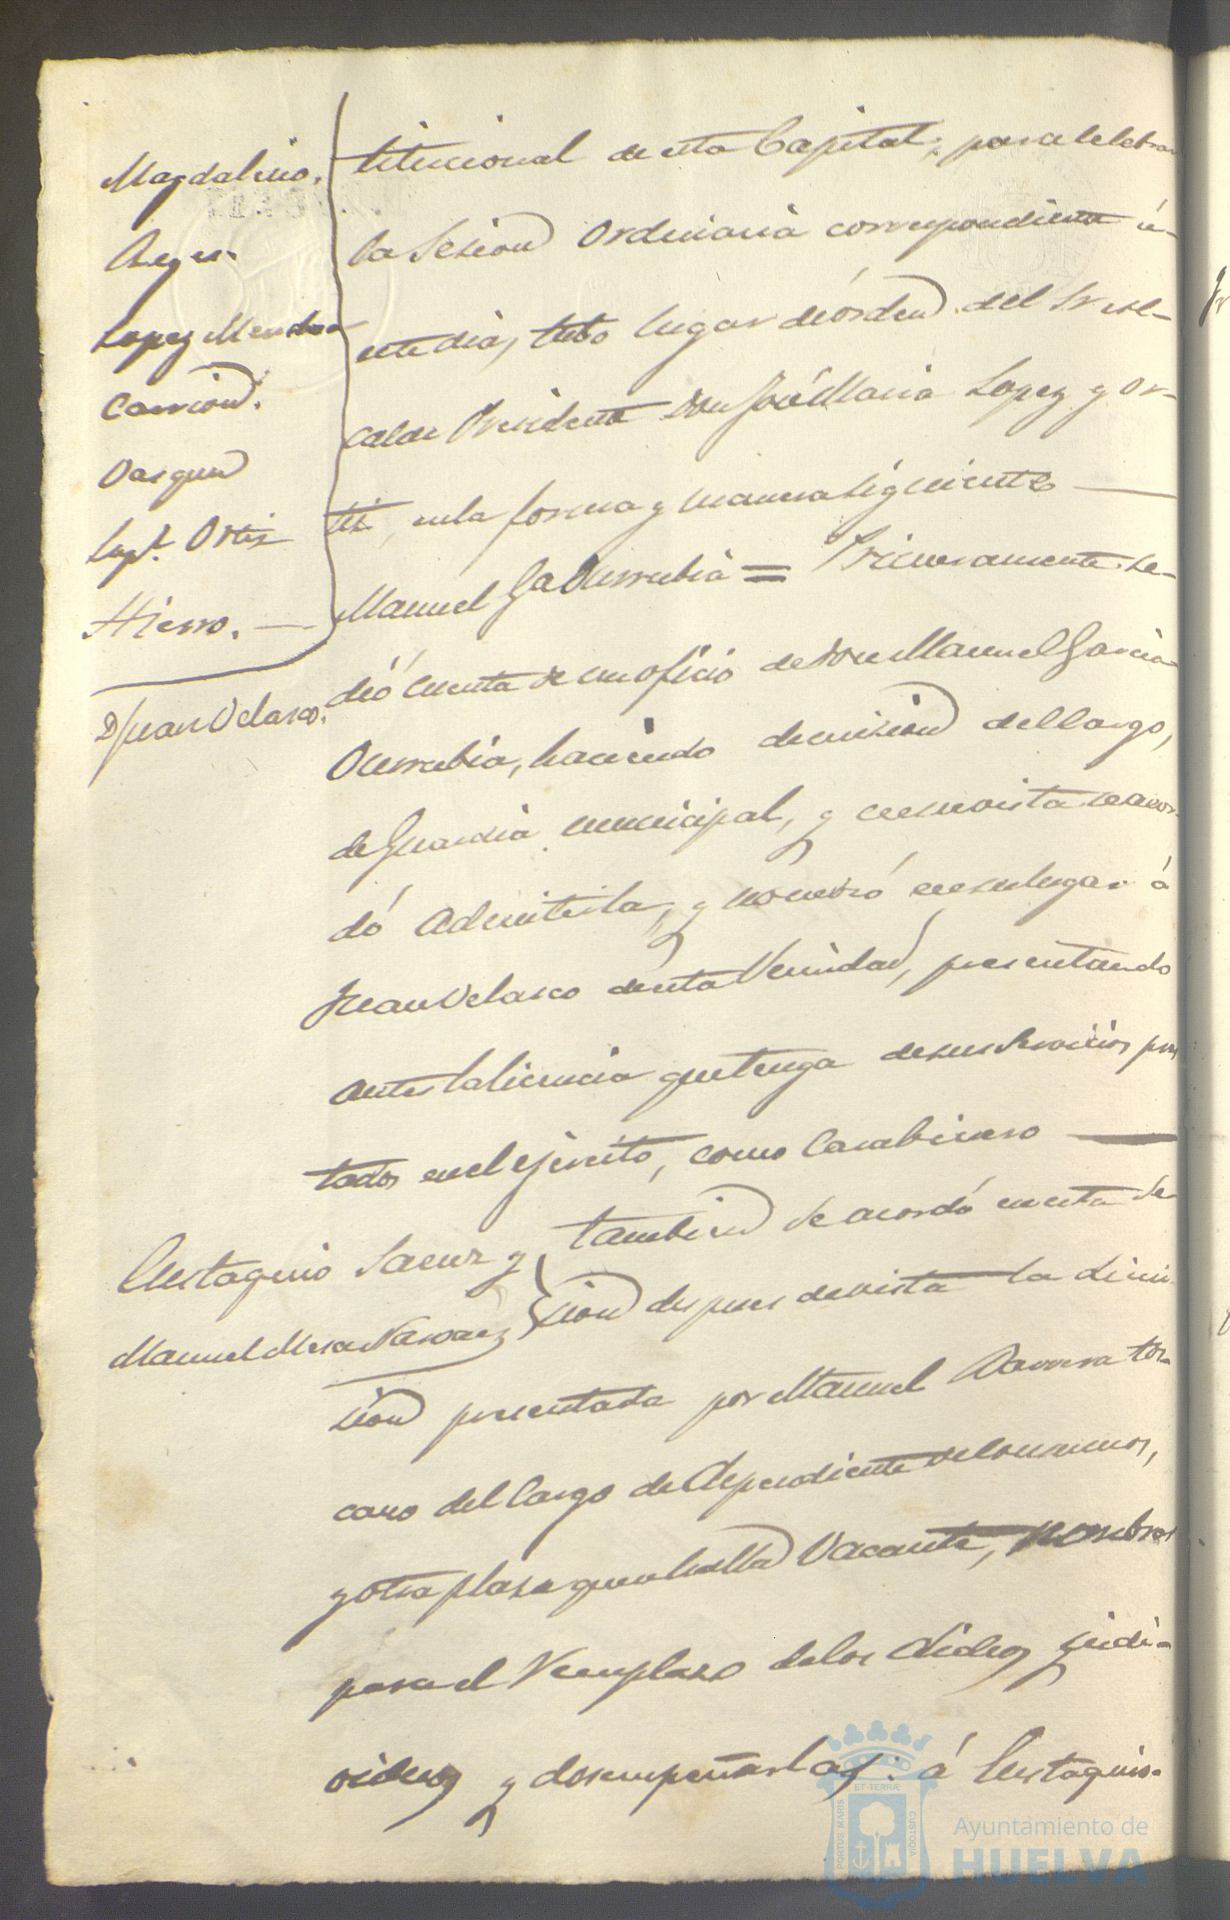 Magdaleno.
Reyes.
Lopez Mendoza
Carrion.
Oarquin
Sup.te Ortiz
Hierro.
titucional de esta Capital, para celebrar
la Sesion Ordinaria correspondiente á
este dia, tubo lugar de órden del Sr Al-
calde Presidente Don José Maria Lopez y Or-
tiz, en la forma y manera siguiente
Manuel Ga Ourrubia = Primeramente se
D Juan Velasco.
dió cuenta de un oficio de Don Manuel Garcia
Ourrubia, haciendo dimision del cargo,
de Guardia municipal, y en su vista se acor-
dó admitirla, y nombró en su lugar á
Juan Velasco de esta Vecindad, presentando
antes la licencia que tenga de sus Servicios pres
tados en el ejército, como Carabinero
Eustaquio Saenz y
Manuel Mesa Narvaez
tambien se acordó en esta Se
sion despues de vista la dimi
sion presentada por Manuel Barrera Tos-
cano del Cargo de Dependiente de Consumos,
y otra plaza que se halla Vacante, nombrar
para el remplazo de los
y desempeñarlas: á Eustaquio
PORTUS MARIS ET TERRÆ CUSTODIA
Ayuntamiento de
HUELVA